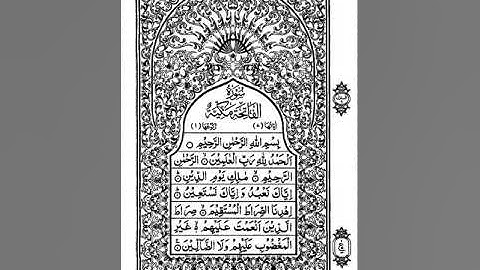 سُوْرَةُ
الْفَاتِحَةِ مَكِّيَّةٌ
اٰيَاتُهَا (٧) رُكُوْعُهَا (١)
بِسْمِ اللّٰهِ الرَّحْمٰنِ الرَّحِيْمِ
اَلْحَمْدُ لِلّٰهِ رَبِّ الْعٰلَمِيْنَ الرَّحْمٰنِ
الرَّحِيْمِ مٰلِكِ يَوْمِ الدِّيْنِ
اِيَّاكَ نَعْبُدُ وَ اِيَّاكَ نَسْتَعِيْنُ
اِهْدِنَا الصِّرَاطَ الْمُسْتَقِيْمَ صِرَاطَ
الَّذِيْنَ اَنْعَمْتَ عَلَيْهِمْ غَيْرِ
الْمَغْضُوْبِ عَلَيْهِمْ وَلَا الضَّآلِّيْنَ